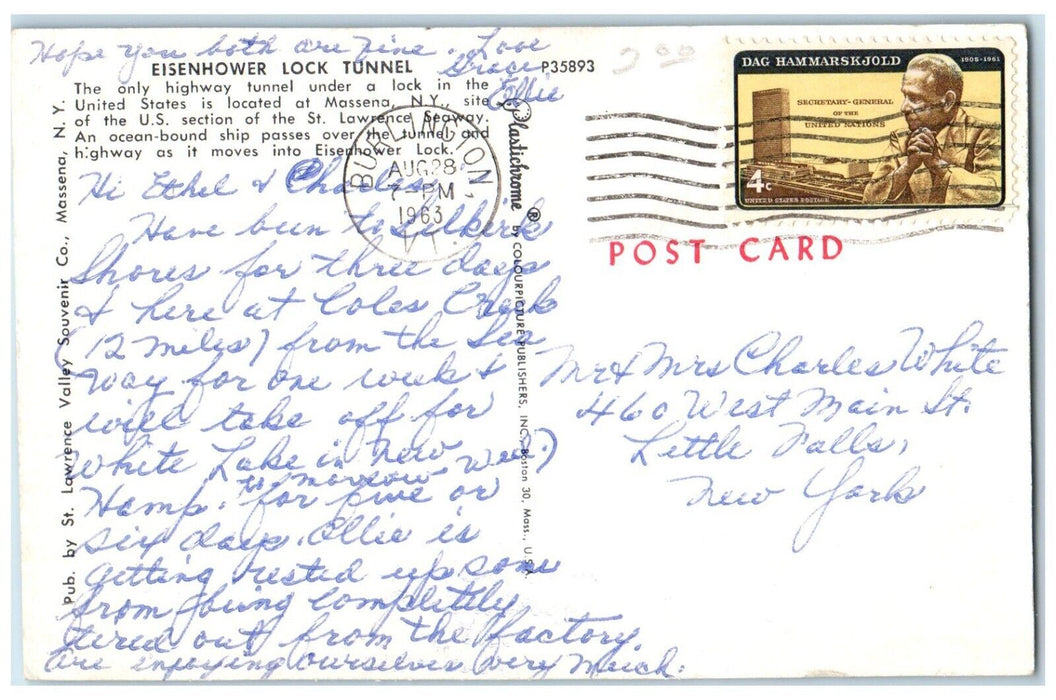 Hope you both are fine. Love
Grace
Ellie
EISENHOWER LOCK TUNNEL
P35893
The only highway tunnel under a lock in the
United States is located at Massena, N.Y., site
of the U.S. section of the St. Lawrence Seaway.
An ocean-bound ship passes over the tunnel and
highway as it moves into Eisenhower Lock.
Hi Ethel & Charles,
Have been to Selkerk
Shores for three days
& here at Coles Creek
(12 miles) from the Sea
way for one week &
will take off for
White Lake in New
Hamp. tomorrow (Wed.)
for five or
six days. Ellie is
getting rested up some
from being completly
tered out from the factory.
are enjoying ourselves very much.
Pub. by St. Lawrence Valley Souvenir Co., Massena, N. Y.
Plastichrome ® by COLOURPICTURE PUBLISHERS, INC., Boston 30, Mass., U.S.A.
BURLINGTON,
AUG 28
7-PM
1963
VT
DAG HAMMARSKJOLD 1905-1961
SECRETARY-GENERAL
OF THE
UNITED NATIONS
4c
UNITED STATES POSTAGE
POST CARD
Mr & Mrs Charles White
460 West Main St.
Little Falls,
New York